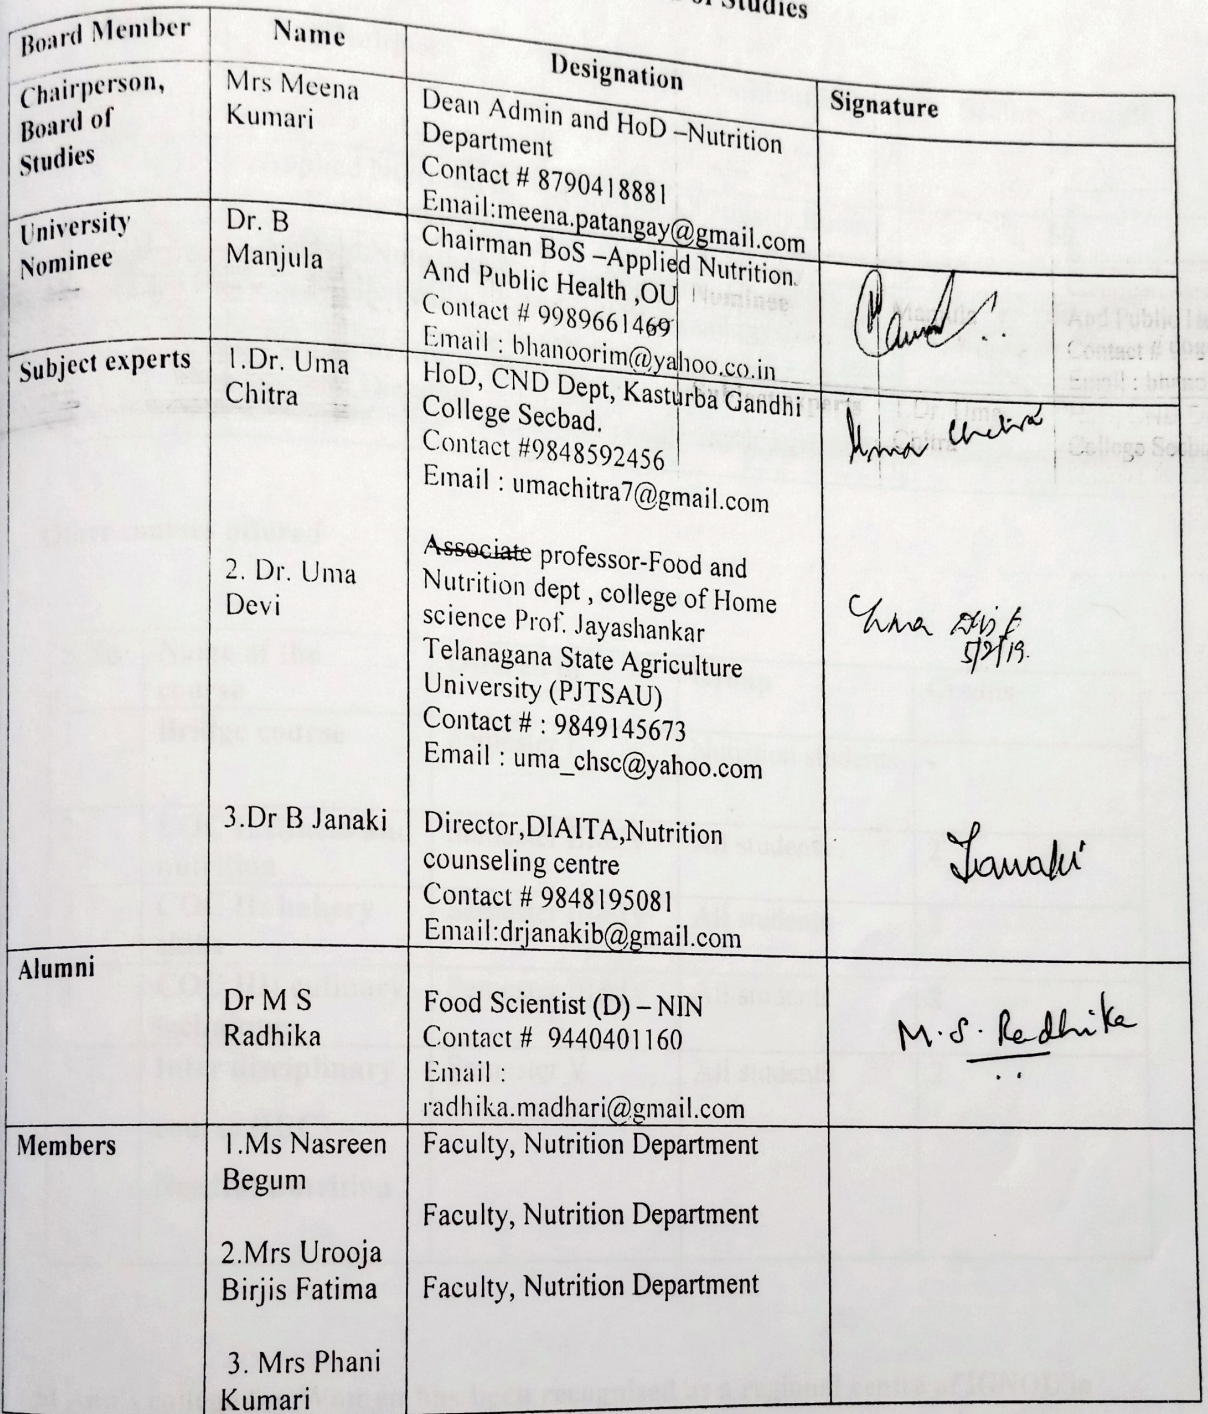 of Studies
Board Member Name Designation Signature
Chairperson,
Board of
Studies
Mrs Meena
Kumari
Dean Admin and HoD –Nutrition
Department
Contact # 8790418881
Email:meena.patangay@gmail.com
University
Nominee
Dr. B
Manjula
Chairman BoS –Applied Nutrition
And Public Health ,OU
Contact # 9989661469
Email : bhanoorim@yahoo.co.in
Subject experts
1.Dr. Uma
Chitra
HoD, CND Dept, Kasturba Gandhi
College Secbad.
Contact #9848592456
Email : umachitra7@gmail.com
Uma Chitra
2. Dr. Uma
Devi
Associate professor-Food and
Nutrition dept , college of Home
science Prof. Jayashankar
Telanagana State Agriculture
University (PJTSAU)
Contact # : 9849145673
Email : uma_chsc@yahoo.com
Uma Devi
5/2/19.
3.Dr B Janaki
Director,DIAITA,Nutrition
counseling centre
Contact # 9848195081
Email:drjanakib@gmail.com
Janaki
Alumni
Dr M S
Radhika
Food Scientist (D) – NIN
Contact # 9440401160
Email :
radhika.madhari@gmail.com
M.S. Radhika
Members
1.Ms Nasreen
Begum
Faculty, Nutrition Department
Faculty, Nutrition Department
2.Mrs Urooja
Birjis Fatima
Faculty, Nutrition Department
3. Mrs Phani
Kumari